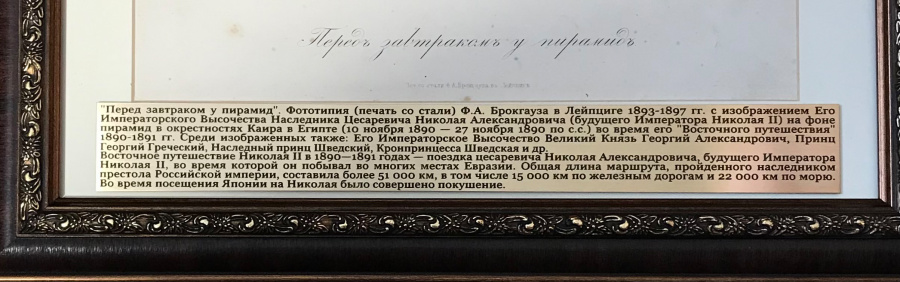 Передъ завтракомъ у пирамидъ
"Перед завтраком у пирамид". Фототипия (печать со стали) Ф.А. Брокгауза в Лейпциге 1893-1897 гг. с изображением Его
Императорского Высочества Наследника Цесаревича Николая Александровича (будущего Императора Николая II) на фоне
пирамид в окрестностях Каира в Египте (10 ноября 1890 — 27 ноября 1890 по с.с.) во время его "Восточного путешествия"
1890-1891 гг. Среди изображенных также: Его Императорское Высочество Великий Князь Георгий Александрович, Принц
Георгий Греческий, Наследный принц Шведский, Кронпринцесса Шведская и др.
Восточное путешествие Николая II в 1890—1891 годах — поездка цесаревича Николая Александровича, будущего Императора
Николая II, во время которой он побывал во многих местах Евразии. Общая длина маршрута, пройденного наследником
престола Российской империи, составила более 51 000 км, в том числе 15 000 км по железным дорогам и 22 000 км по морю.
Во время посещения Японии на Николая было совершено покушение.